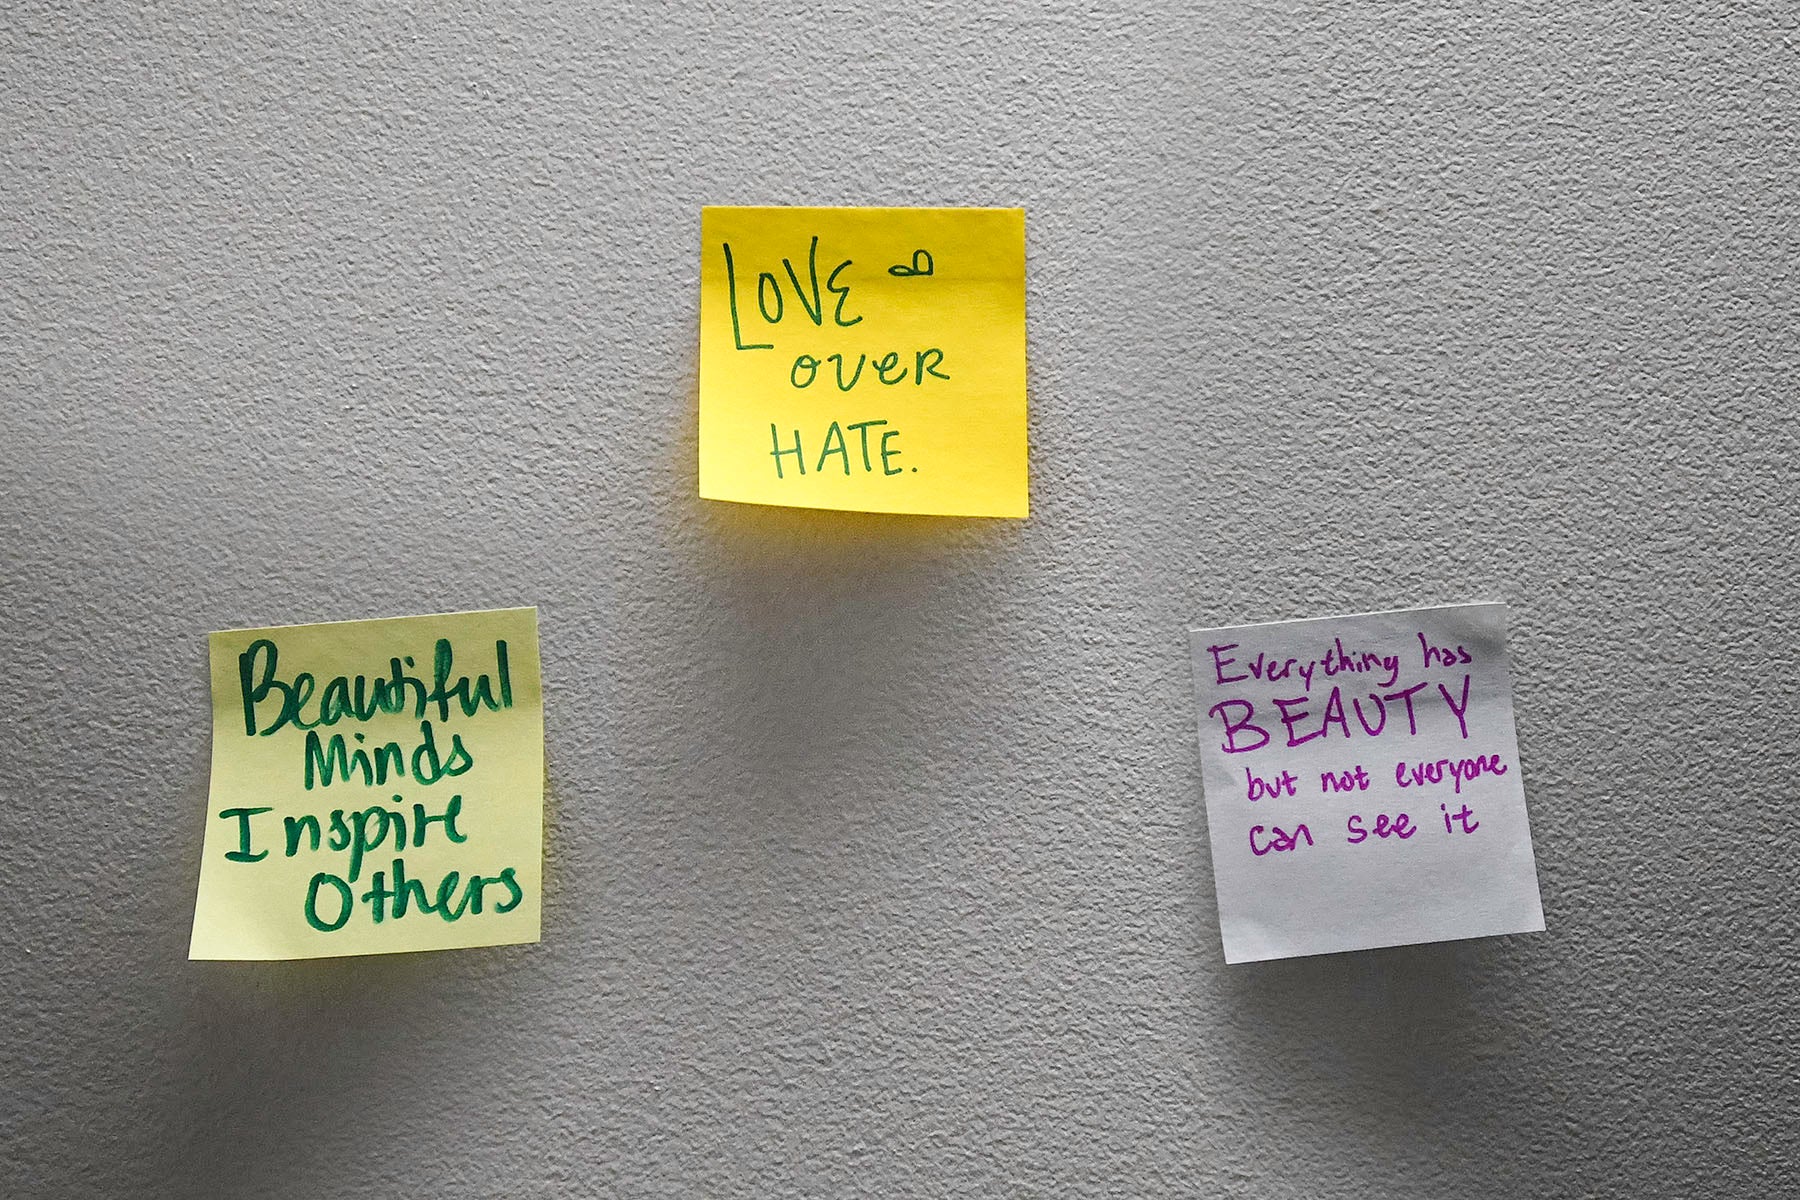 LOVE
OVER
HATE.
Beautiful
Minds
Inspire
Others
Everything has
BEAUTY
but not everyone
can see it